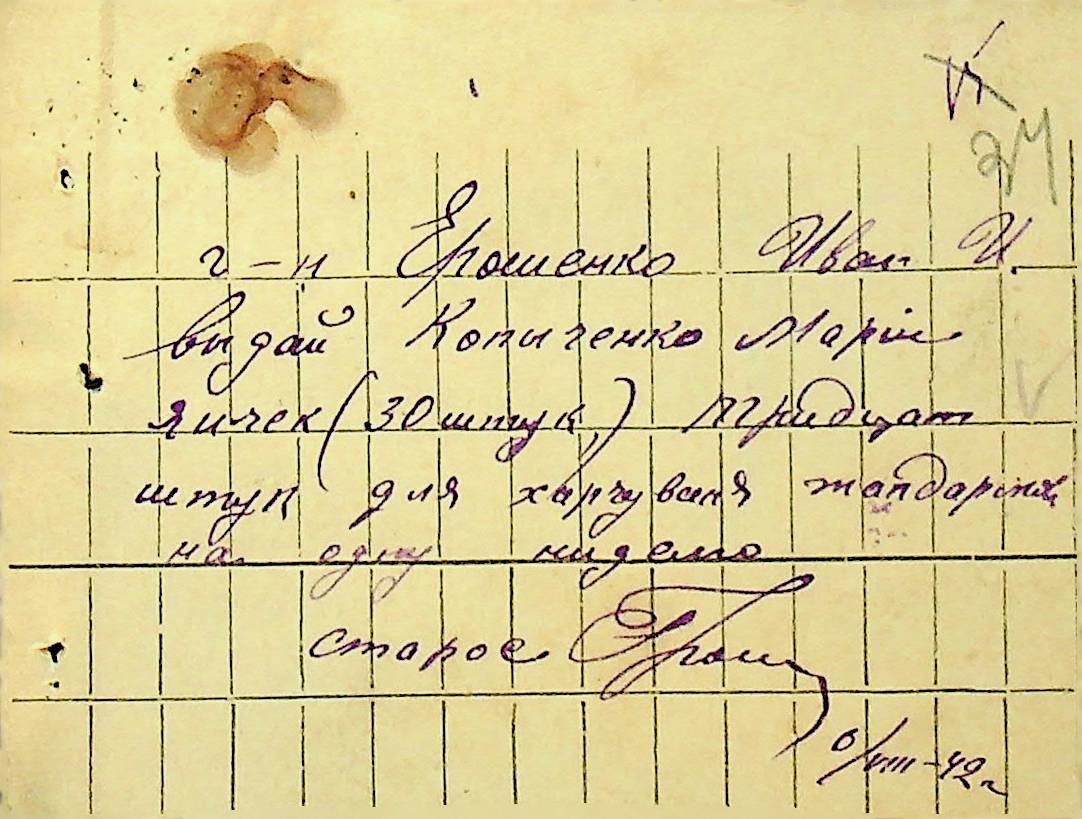 24
г-н Ерошенко Иван И.
выдай Копыченко Марии
яичек (30 штук) тридцат
штук для харчуваня жандармів
на одну ниделю
старос
8/VIII-42 г